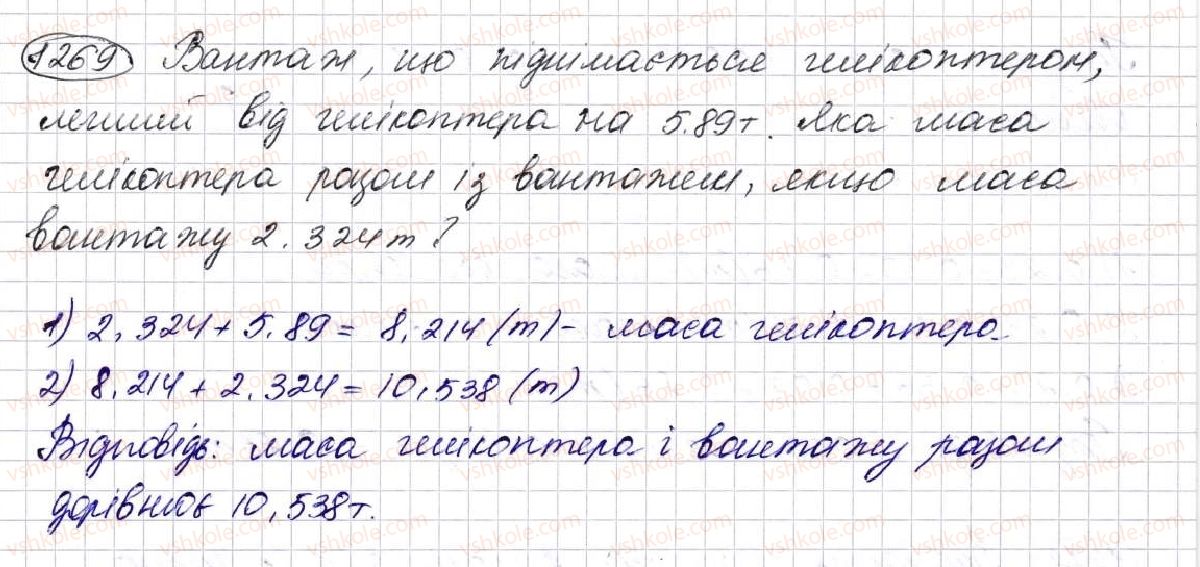 1269 Вантаж, що піднімається гелікоптером,
легший від гелікоптера на 5.89т. Яка маса
гелікоптера разом із вантажем, якщо маса
вантажу 2.324т?
1) 2,324 + 5.89 = 8,214 (т) - маса гелікоптера.
2) 8,214 + 2,324 = 10,538 (т)
Відповідь: маса гелікоптера і вантажу разом
дорівнює 10,538т.